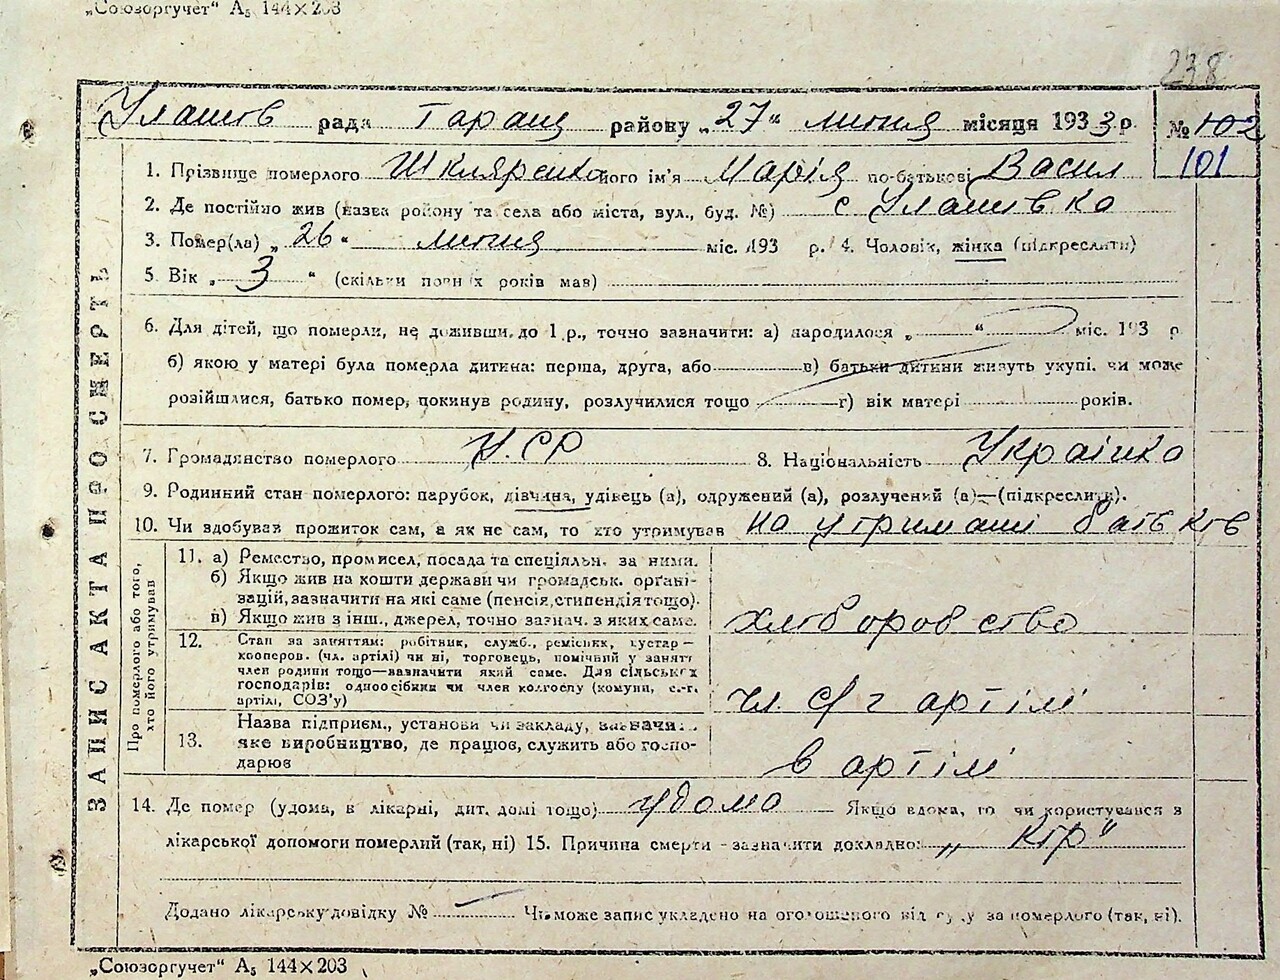 „Союзоргучет“ А₅ 144×203
238
Улашів рада Таращ району „27“ липня місяця 1933 р.
№ 102
101
1. Прізвище померлого Шкляренко його ім'я Марія по-батькові Васил
2. Де постійно жив (назва району та села або міста, вул., буд. №) с Улашівка
3. Помер(ла) „26“ липня міс. 193 р. 4. Чоловік, жінка (підкреслити)
5. Вік „ 3 “ (скільки повних років мав)
6. Для дітей, що померли, не доживши до 1 р., точно зазначити: а) народилося „ “ міс. 193 р
б) якою у матері була померла дитина: перша, друга, або в) батьки дитини живуть укупі, чи може
розійшлися, батько помер, покинув родину, розлучилися тощо г) вік матері років.
7. Громадянство померлого У.СР 8. Національність Українка
9. Родинний стан померлого: парубок, дівчина, удівець (а), одружений (а), розлучений (а)—(підкреслити).
10. Чи здобував прожиток сам, а як не сам, то хто утримував на утриманні батьків
ЗАПИС АКТА ПРО СМЕРТЬ
Про померлого або того,
хто його утримував
11. а) Ремество, промисел, посада та спеціяльн. за ними.
б) Якщо жив на кошти держави чи громадськ. орґані-
зацій, зазначити на які саме (пенсія, стипендія тощо).
в) Якщо жив з інш., джерел, точно зазнач. з яких саме.
хліборобство
12. Стан за заняттям: робітник, служб., ремісник, кустар—
кооперов. (чл. артілі) чи ні, торговець, помічний у занятті
член родини тощо—зазначити який саме. Для сільських
господарів: одноосібник чи член колгоспу (комуни, с.-г.
артілі, СОЗ'у)
чл с/г артілі
Назва підприєм., установи чи закладу, зазначи
13. яке виробництво, де працює, служить або госпо-
дарює
в артілі
14. Де помер (удома, в лікарні, дит. домі тощо) удома Якщо вдома, то чи користувався з
лікарської допомоги померлий (так, ні) 15. Причина смерти - зазначити докладно:
Додано лікарську довідку № — Чи може запис укладено на оголошеного від суду за померлого (так, ні).
„Союзоргучет“ А₅ 144×203